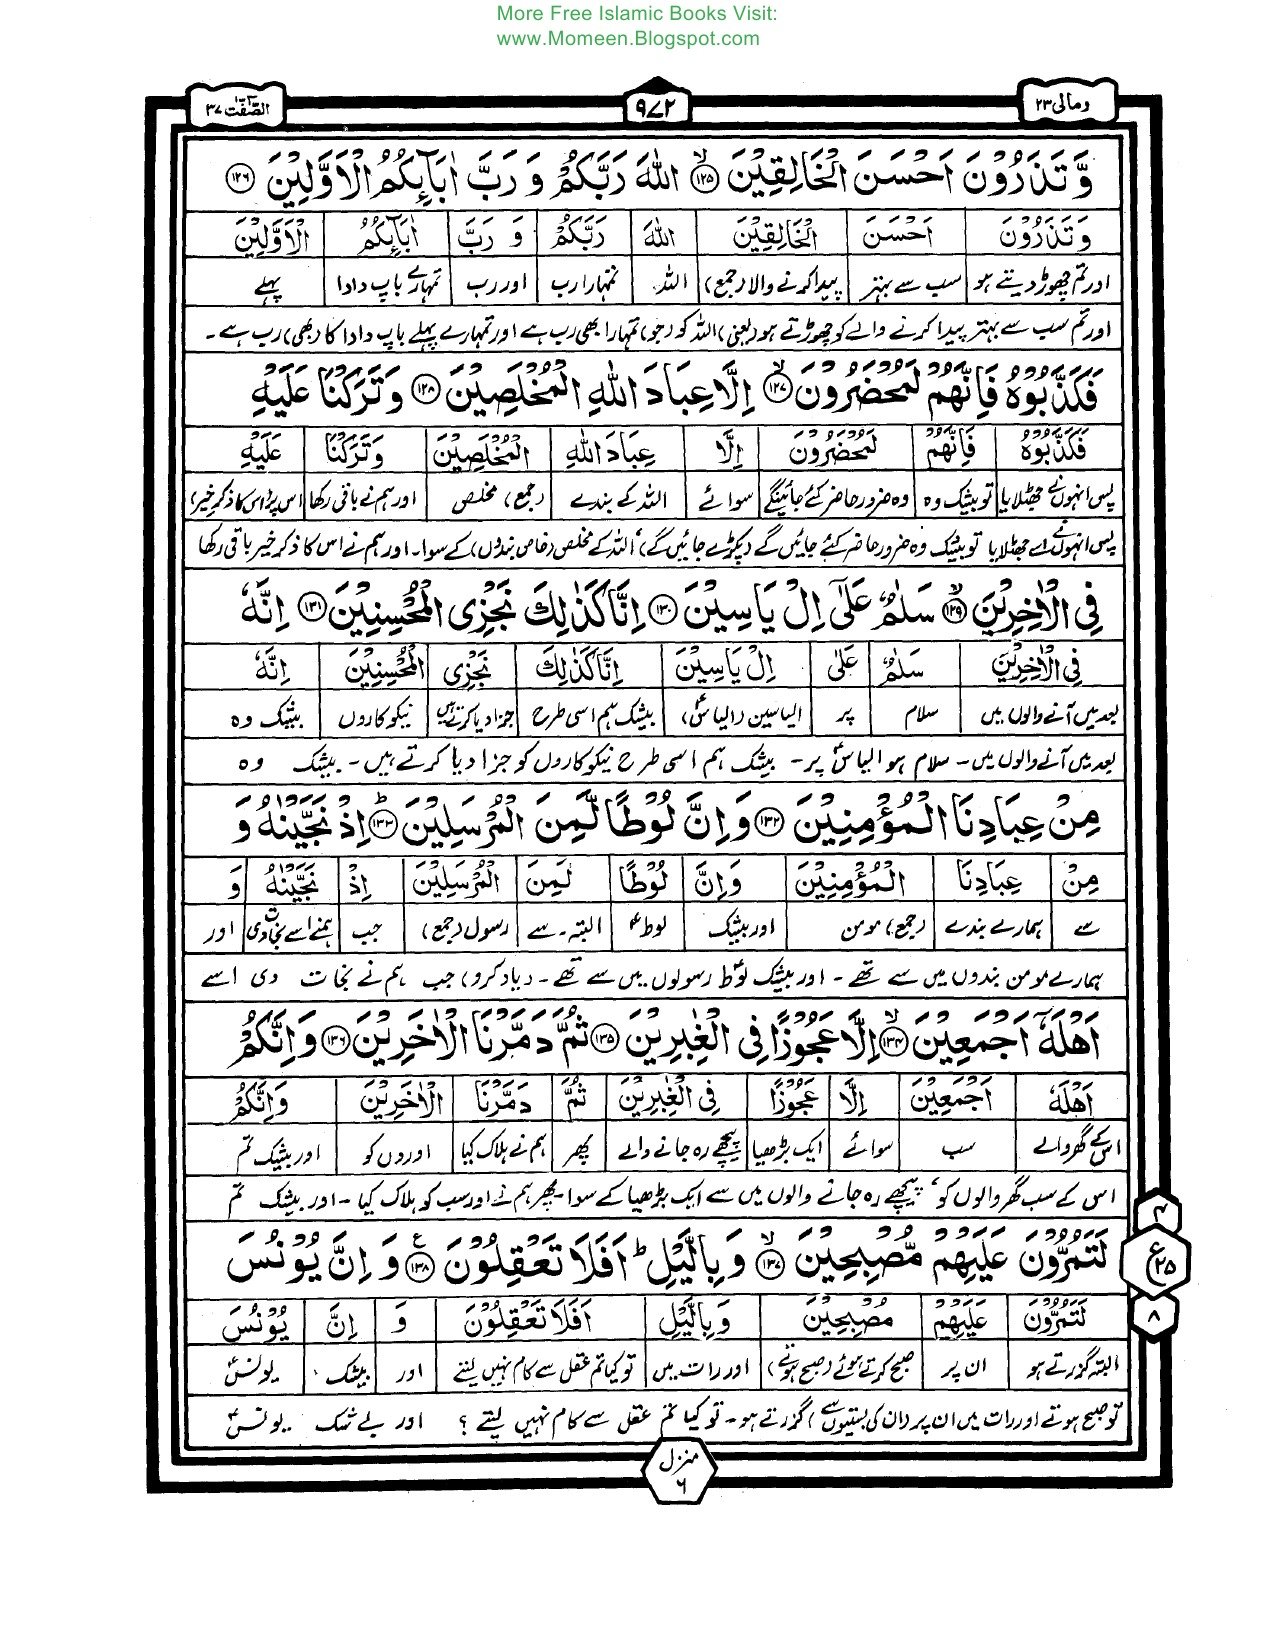 More Free Islamic Books Visit:
www.Momeen.Blogspot.com
ومالی ۲۳
۹۷۲
الصّٰٓفّٰت ۳۷
وَّتَذَرُوْنَ اَحْسَنَ الْخَالِقِيْنَ ۙ﴿۱۲۵﴾ اللّٰهَ رَبَّكُمْ وَ رَبَّ اٰبَآئِكُمُ الْاَوَّلِيْنَ ﴿۱۲۶﴾
وَتَذَرُوْنَ اَحْسَنَ الْخَالِقِيْنَ اللّٰهَ رَبَّكُمْ وَ رَبَّ اٰبَآئِكُمُ الْاَوَّلِيْنَ
اور تم چھوڑ دیتے ہو سب سے بہتر پیدا کرنے والا (جمع) اللہ تمہارا رب اور رب تمہارے باپ دادا پہلے
اور تم سب سے بہتر پیدا کرنے والے کو چھوڑتے ہو (یعنی) اللہ کو (جو) تمہارا بھی رب ہے اور تمہارے پہلے باپ دادا کا (بھی) رب ہے۔
فَكَذَّبُوْهُ فَاِنَّهُمْ لَمُحْضَرُوْنَ ۙ﴿۱۲۷﴾ اِلَّا عِبَادَ اللّٰهِ الْمُخْلَصِيْنَ ﴿۱۲۸﴾ وَ تَرَكْنَا عَلَيْهِ
فَكَذَّبُوْهُ فَاِنَّهُمْ لَمُحْضَرُوْنَ اِلَّا عِبَادَ اللّٰهِ الْمُخْلَصِيْنَ وَتَرَكْنَا عَلَيْهِ
پس انہوں نے جھٹلایا تو بیشک وہ وہ ضرور حاضر کئے جائینگے سوائے اللہ کے بندے (جمع) مخلص اور ہم نے باقی رکھا اس پر (اس کا ذکر خیر)
پس انہوں نے اسے جھٹلایا تو بیشک وہ ضرور حاضر کئے جائیں گے (پکڑے جائیں گے) اللہ کے مخلص (خاص بندوں) کے سوا۔ اور ہم نے اس کا ذکر خیر باقی رکھا
فِي الْاٰخِرِيْنَ ۙ﴿۱۲۹﴾ سَلٰمٌ عَلٰٓى اِلْ يَاسِيْنَ ﴿۱۳۰﴾ اِنَّا كَذٰلِكَ نَجْزِي الْمُحْسِنِيْنَ ﴿۱۳۱﴾ اِنَّهٗ
فِي الْاٰخِرِيْنَ سَلٰمٌ عَلٰٓى اِلْ يَاسِيْنَ اِنَّا كَذٰلِكَ نَجْزِي الْمُحْسِنِيْنَ اِنَّهٗ
بعد میں آنے والوں میں سلام پر الیاسین (الیاسؑ) بیشک ہم اسی طرح جزا دیا کرتے ہیں نیکوکاروں بیشک وہ
بعد میں آنے والوں میں۔ سلام ہو الیاسؑ پر۔ بیشک ہم اسی طرح نیکوکاروں کو جزا دیا کرتے ہیں۔ بیشک وہ
مِنْ عِبَادِنَا الْمُؤْمِنِيْنَ ﴿۱۳۲﴾ وَ اِنَّ لُوْطًا لَّمِنَ الْمُرْسَلِيْنَ ؕ﴿۱۳۳﴾ اِذْ نَجَّيْنٰهُ وَ
مِنْ عِبَادِنَا الْمُؤْمِنِيْنَ وَاِنَّ لُوْطًا لَمِنَ الْمُرْسَلِيْنَ اِذْ نَجَّيْنٰهُ وَ
سے ہمارے بندے (جمع) مومن اور بیشک لوطؑ البتہ۔ سے رسول (جمع) جب ہمنے اسے نجات دی اور
ہمارے مومن بندوں میں سے تھے۔ اور بیشک لوطؑ رسولوں میں سے تھے۔ (یاد کرو) جب ہم نے نجات دی اسے
اَهْلَهٗٓ اَجْمَعِيْنَ ۙ﴿۱۳۴﴾ اِلَّا عَجُوْزًا فِي الْغٰبِرِيْنَ ﴿۱۳۵﴾ ثُمَّ دَمَّرْنَا الْاٰخَرِيْنَ ﴿۱۳۶﴾ وَ اِنَّكُمْ
اَهْلَهٗ اَجْمَعِيْنَ اِلَّا عَجُوْزًا فِي الْغٰبِرِيْنَ ثُمَّ دَمَّرْنَا الْاٰخَرِيْنَ وَاِنَّكُمْ
اس کے گھر والے سب سوائے ایک بڑھیا پیچھے رہ جانے والے پھر ہم نے ہلاک کیا اوروں کو اور بیشک تم
اس کے سب گھر والوں کو، پیچھے رہ جانے والوں میں سے ایک بڑھیا کے سوا۔ پھر ہم نے اور سب کو ہلاک کیا۔ اور بیشک تم
لَتَمُرُّوْنَ عَلَيْهِمْ مُّصْبِحِيْنَ ۙ﴿۱۳۷﴾ وَ بِالَّيْلِ ؕ اَفَلَا تَعْقِلُوْنَ ﴿۱۳۸﴾ؑ وَ اِنَّ يُوْنُسَ
لَتَمُرُّوْنَ عَلَيْهِمْ مُصْبِحِيْنَ وَبِالَّيْلِ اَفَلَا تَعْقِلُوْنَ وَ اِنَّ يُوْنُسَ
البتہ گزرتے ہو ان پر صبح کرتے ہوئے (صبح ہوتے) اور رات میں تو کیا تم عقل سے کام نہیں لیتے اور بیشک یونسؑ
تو صبح ہوتے اور رات میں ان پر (ان کی بستیوں سے) گزرتے ہو۔ تو کیا تم عقل سے کام نہیں لیتے ؟ اور بے شک یونسؑ
۴
ع ۲۵
۸
منزل
۶